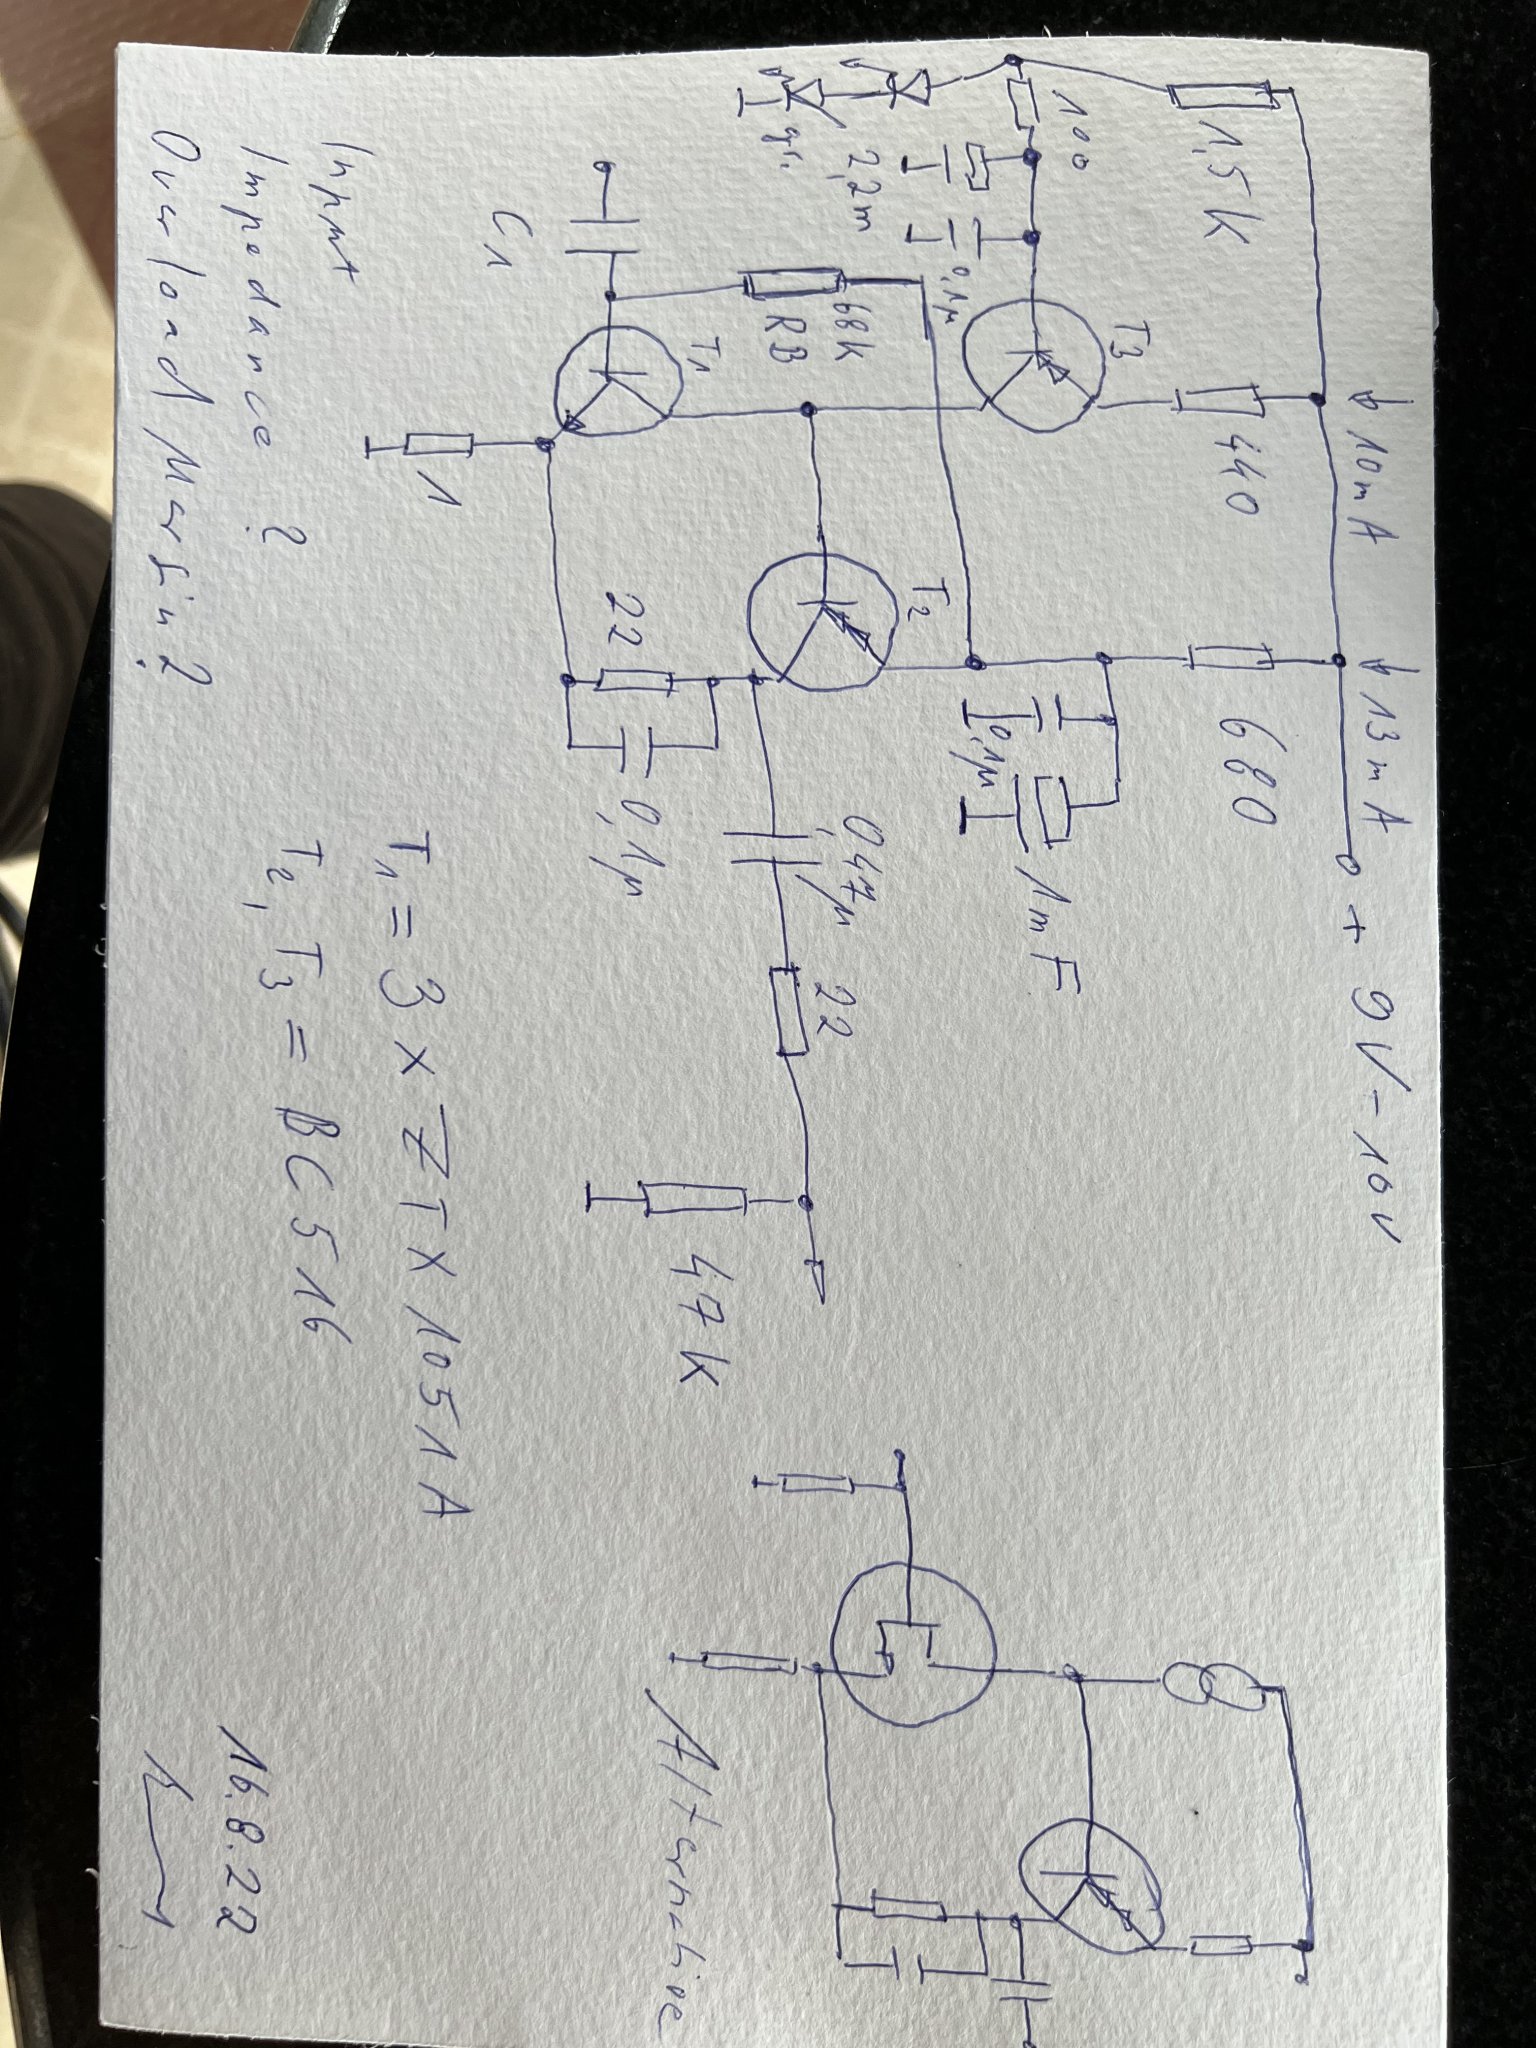 ↓ 10mA ↓ 13mA + 9V-10V
1,5k 440 680
100 T3
2,2m 0,1µ T2 0,1µ 1mF
gr.
68k
RB 0,47µ 22
T1
22 0,1µ 47k
C1
1
Alternative
Input
Impedance?
Overload Margin?
T1 = 3 x ZTX 1051A
T2, T3 = BC516
16.8.22